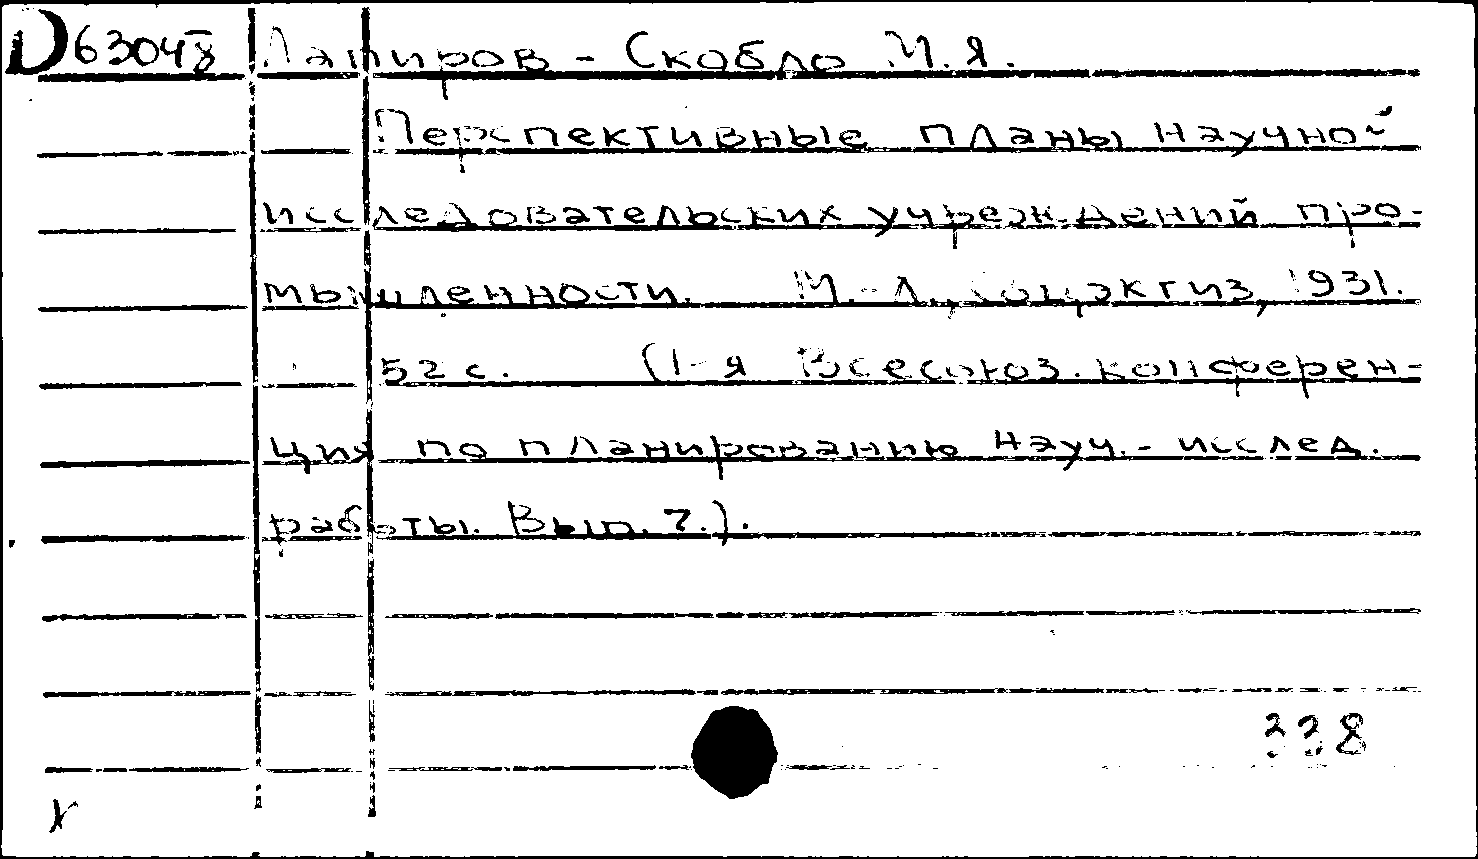 D63048 Лапиров - Скобло М.Я.
Перспективные планы научной
исследовательских учреждений про-
мышленности. М.-Л., Соцэкгиз, 1931.
52 с. (1-я Всесоюз. конферен-
ция по планированию науч.- исслед.
работы. Вып. 7.).
338